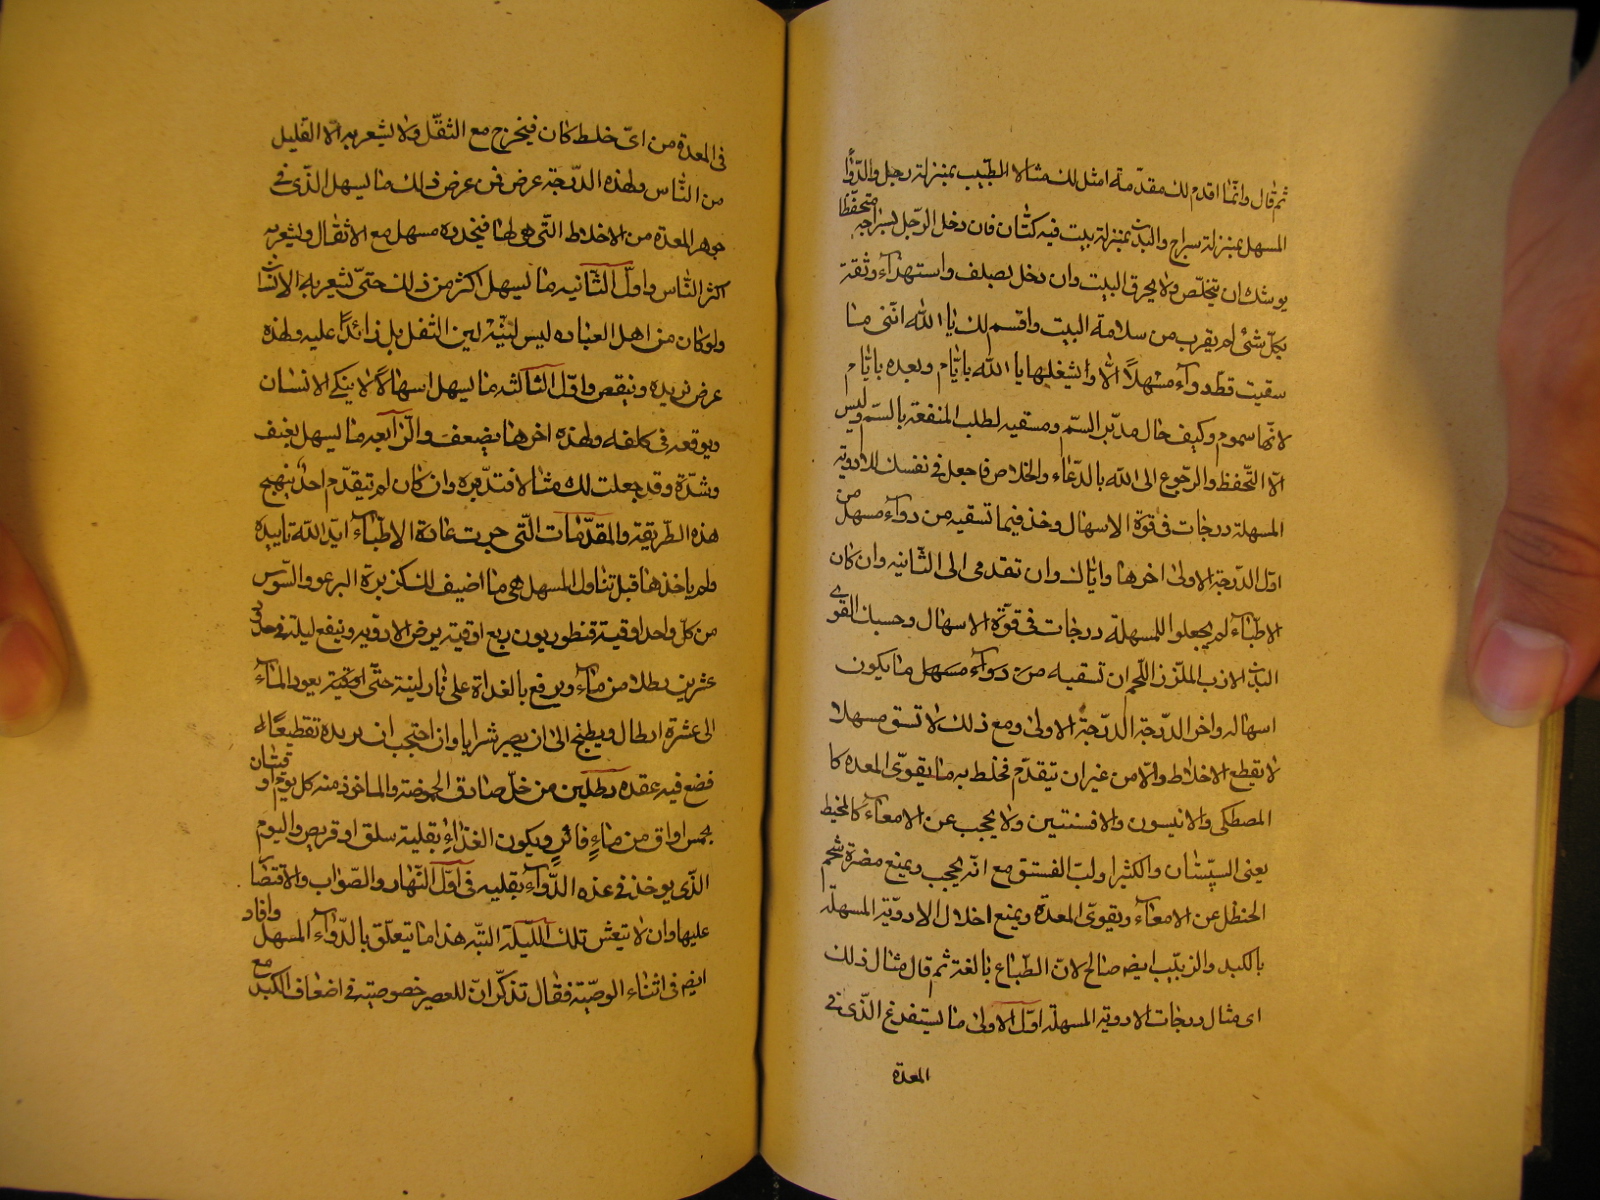 ثم قال وانما اقدم لك مقدمة امثل لك مثالا الطبيب بمنزلة رجل والدوآء
المسهل بمنزلة سراج والبدن بمنزلة بيت فيه كتان فان دخل الرجل بسراجه متحفظا
يوشك ان يتخلص ولا يحرق البيت وان دخل بصلف واستهزاء وثقة
بكل شئ لم يقرب من سلامة البيت واقسم لك يا الله انني ما
سقيت قط دوآء مسهلاً الا واشغلها يا الله بايام وبعده بايام
لانها سموم وكيف حال مدبر السم ومسقيه لطلب المنفعة بالسم وليس
الا التحفظ والرجوع الى الله بالدعاء والخلاص فاجعل في نفسك للادوية
المسهلة درجات في قوة الاسهال وخذ فيما تسقيه من دوآء مسهل من
اول الدرجة الاولى اخرها واياك وان تقدمى الى الثانيه وان كان
الاطبآء لم يجعلوا للمسهلة درجات في قوة الاسهال وحسبك القوى
البدن الازب الملزز اللحم ان تسقيه من دوآء مسهل ما يكون
اسهاله واخر الدرجة الدرجة الاولى ومع ذلك لا تسق مسهلا
لا يقطع الاخلاط والا من غير ان تتقدم فخلط به ما يقوى المعده كا
المصطكى والانيسون والافسنتين ولا يحجب عن الامعآء كالمخيط
يعنى السپستان والكثيرا ولب الفستق مع انه يحجب ويمنع مضرة شحم
الحنظل عن الامعآء ويقوى المعدة ويمنع اخلال الادوية المسهلة
بالكبد والزبيب ايض صالح لان الطباع بالغة ثم قال مثال ذلك
اى مثال درجات الادوية المسهلة اول الاولى ما يستفرغ الذى في
المعدة
فى المعدة من اى خلط كان فيخرج مع الثقل ولا يشعر به الا القليل
من الناس وهذه الدرجة عرض فمن عرض ذلك ما يسهل الذى فى
جوهر المعدة من الاخلاط التى هى لها فيخدده مسهل مع الاثقال ويشعر به
اكثر الناس واول الثانيه ما يسهل اكثر من ذلك حتى يشعر به الانسان
ولو كان من اهل العباده ليس لينه لين الثفل بل زائداً عليه وهذه
عرض تريده وينقص واول الثالثه ما يسهل اسهالاً لا ينكى الانسان
ويوقعه فى كلفه وهذه اخرها يضعف والرابعه ما يسهل بعنف
وشدة وقد جعلت لك مثالا فتدبره وان كان لم يتقدم احد بنهج
هذه الطريقة والمقدمات التى جرت عادة الاطبآء ايد الله تاييده
ولم ياخذها قبل تناول المسهل هى ما اضيف لك كزبرة البرعو والسوس
من كل واحد اوقية قنطوريون ربع اوقية يرض الادويه وينفع ليلة فى
عشرين رطلا من مآء ويرفع بالغداة على نار لينة حتى يعود المآء
الى عشرة ارطال ويطبخ الى ان يصير شرابا وان احتجب ان يريده تقطيعاً له
فضع فيه عقده رطلين من خل صادق الحموضة والماخوذ منه كل يوم اوقيتان او
بخمس اواق من ماءٍ فاترٍ ويكون الغذاء بقلية سلق او قريص واليوم
الذى يوخذ فى غذه الدوآء بقليه فى اول النهار والصواب والاقتضا
عليها وان لا يتعش تلك الليلة البته هذا ما يتعلق بالدوآء المسهل وافاد
ايض فى اثناء الوصية فقال تذكر ان للعصير خصوصية فى اضعاف الكبد مع